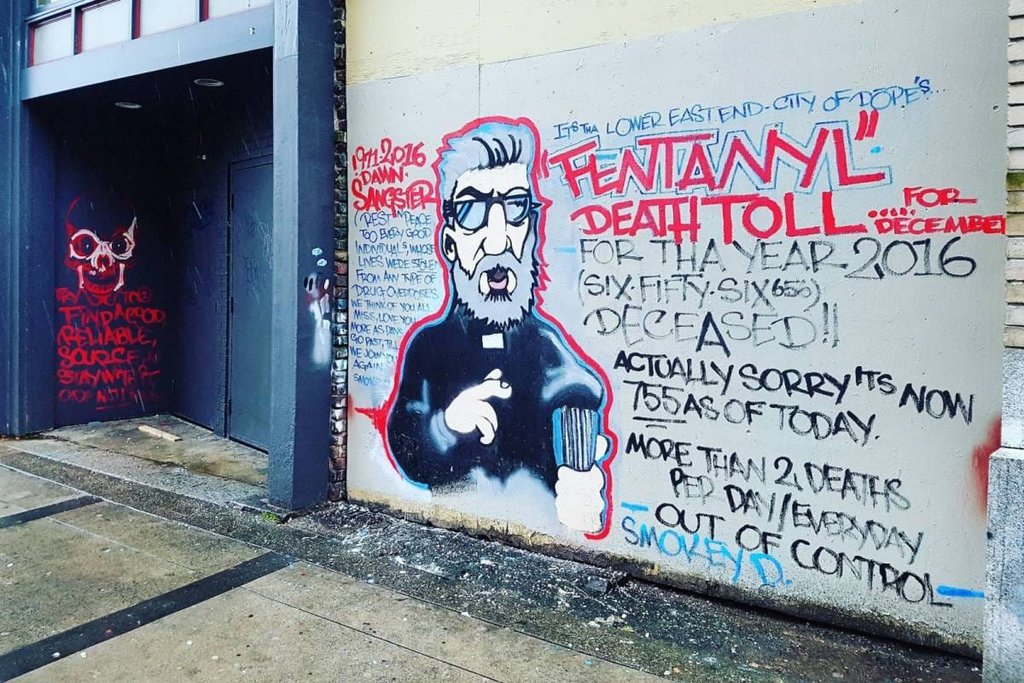 1971-2016
DAWN
SANGSTER
(REST IN PEACE
TOO EVERY GOOD
INDIVIDUALS, WHOSE
LIVES WERE STOLEN
FROM ANY TYPE OF
DRUG OVERDOSES
WE THINK OF YOU ALL
MISS, LOVE YOU
MORE AS DAYS
GO PAST, TILL
WE JOIN YOU
AGAIN
SMOKEY
IT'S THA LOWER EAST END-CITY OF DOPE'S...
"FENTANYL"
DEATH TOLL ..... FOR DECEMBER
FOR THA YEAR 2016
(SIX·FIFTY·SIX 656)
DECEASED!!
ACTUALLY SORRY IT'S NOW
755 AS OF TODAY.
MORE THAN 2 DEATHS
PER DAY//EVERYDAY
OUT OF CONTROL
SMOKEY D.
FIND A GOOD
RELIABLE,
SOURCE,